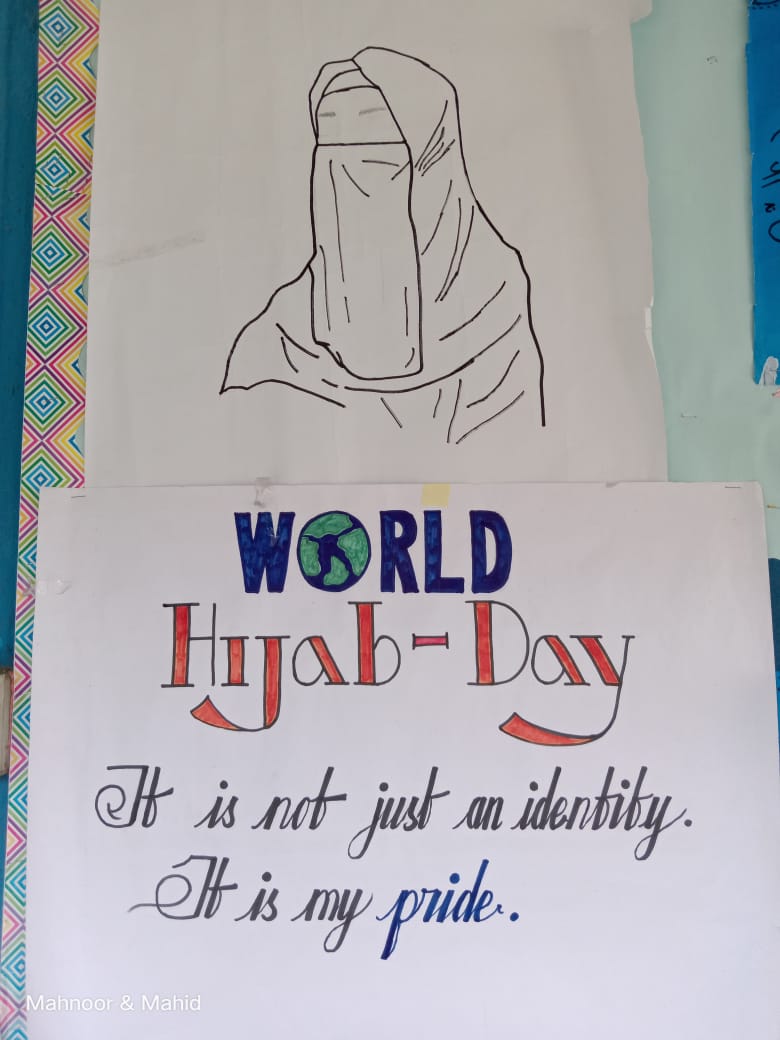 WORLD
Hijab-Day
It is not just an identity.
It is my pride.
Mahnoor & Mahid